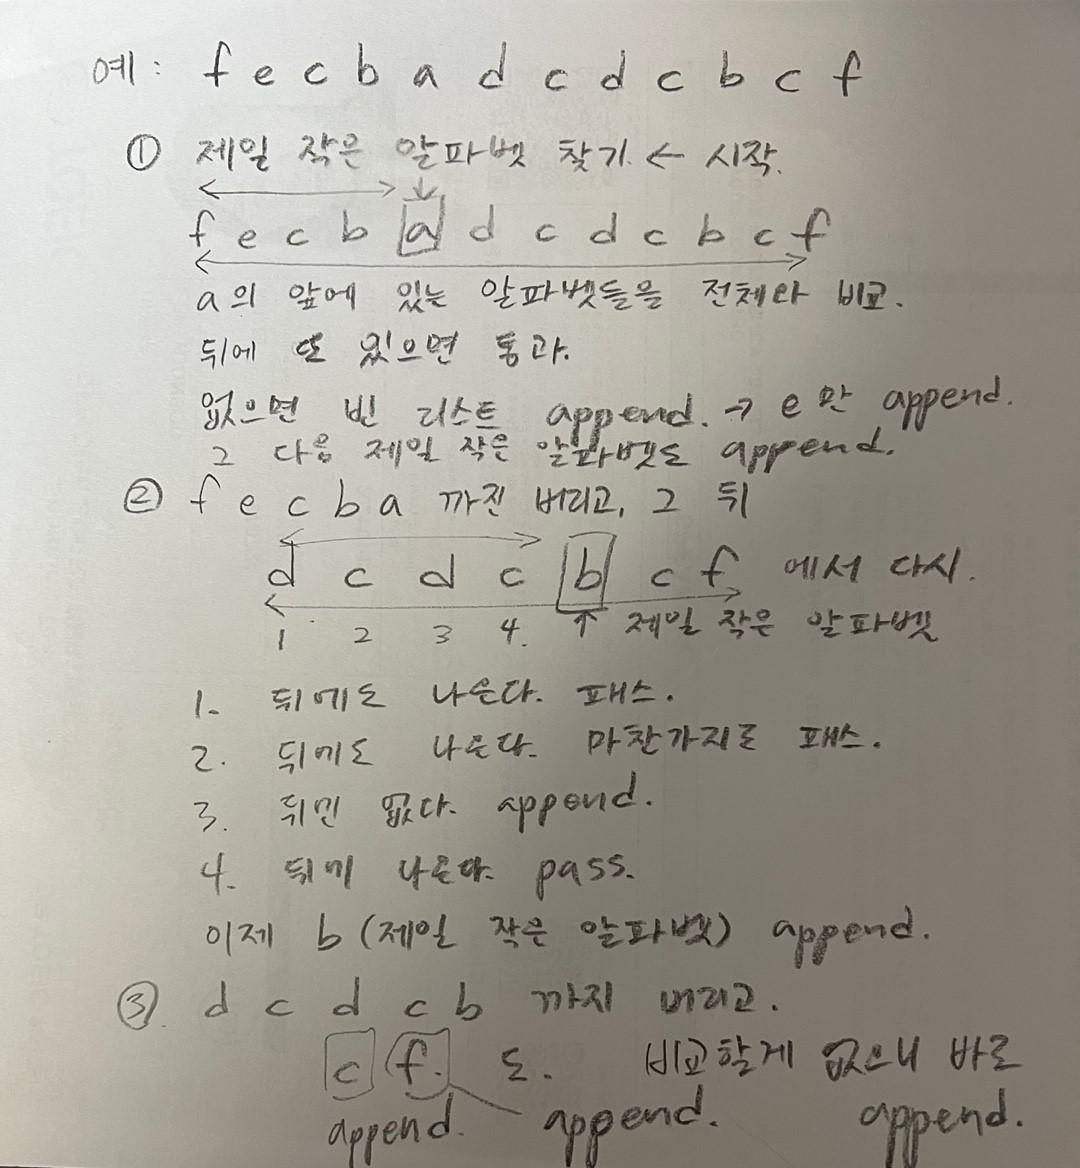 예: f e c b a d c d c b c f
① 제일 작은 알파벳 찾기. ← 시작.
f e c b a d c d c b c f
a의 앞에 있는 알파벳들을 전체와 비교.
뒤에 또 있으면 통과.
없으면 빈 리스트 append. → e만 append.
그 다음 제일 작은 알파벳도 append.
② f e c b a 까진 버리고, 그 뒤
d c d c b c f 에서 다시.
1 2 3 4. ↑ 제일 작은 알파벳
1. 뒤에도 나온다. 패스.
2. 뒤에도 나온다. 마찬가지로 패스.
3. 뒤엔 없다. append.
4. 뒤에 나온다. pass.
이제 b (제일 작은 알파벳) append.
③ d c d c b 까지 버리고.
c f. 도. 비교할게 없으니 바로
append. append. append.